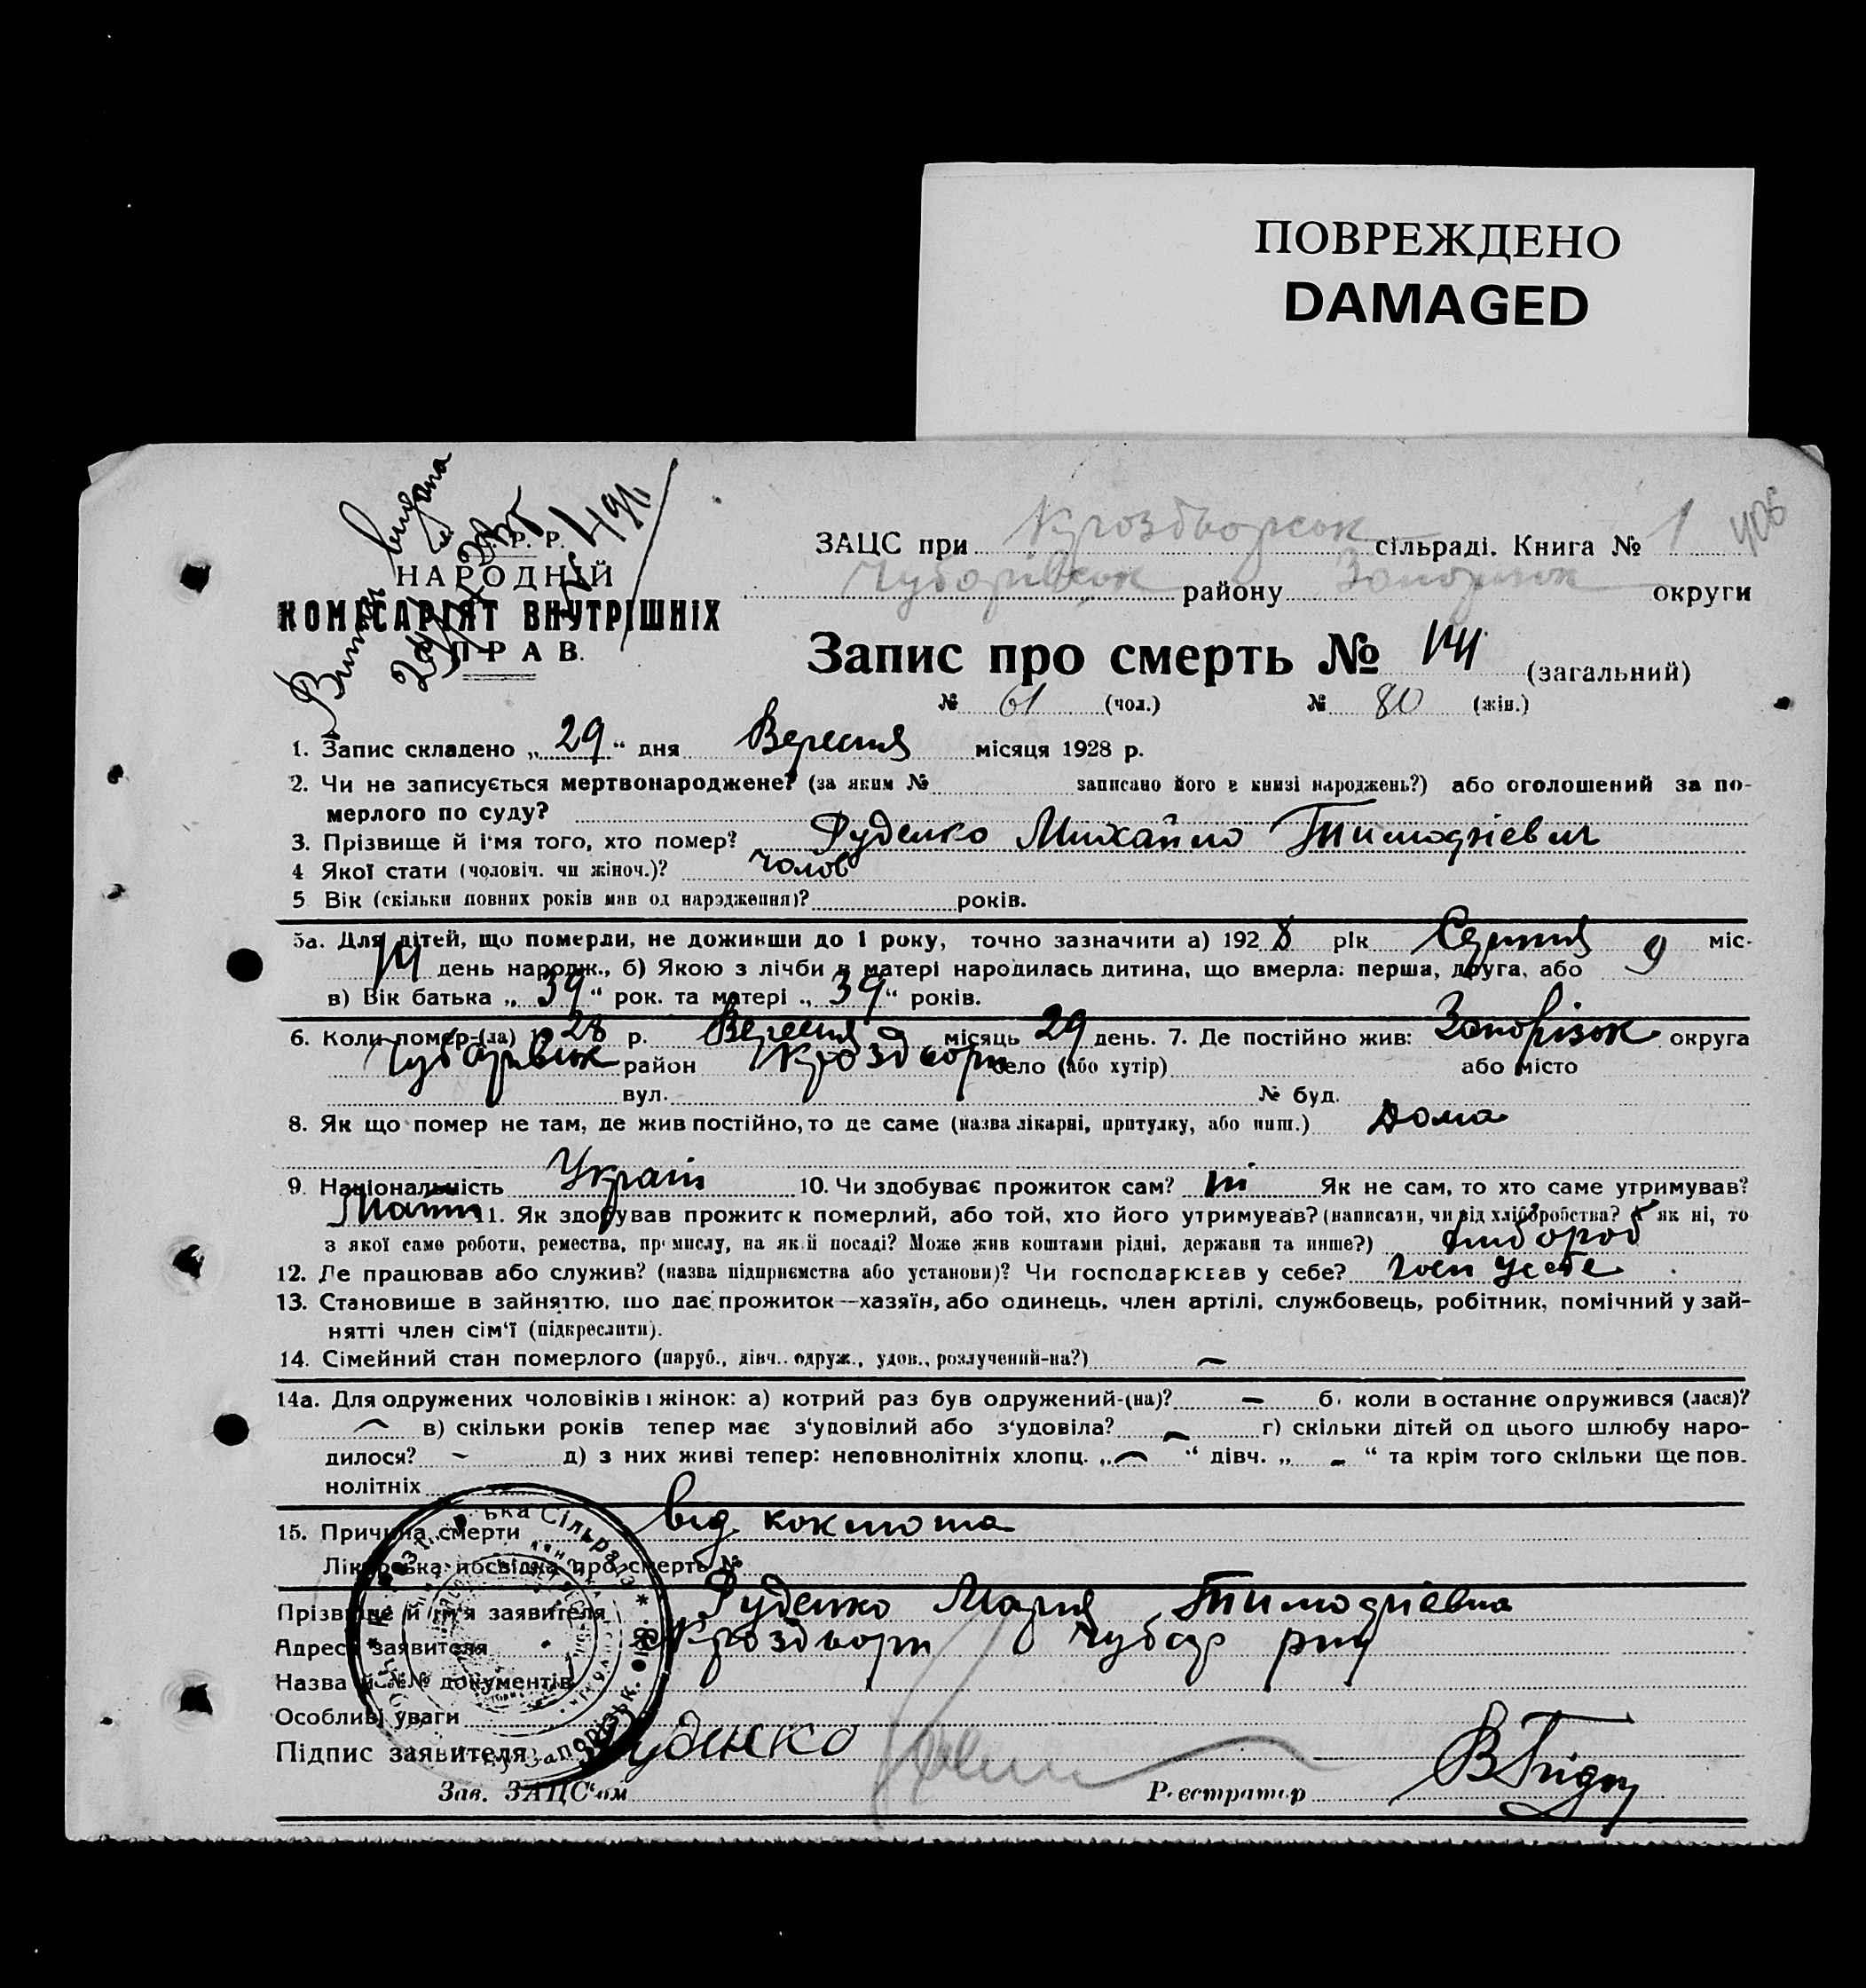 ПОВРЕЖДЕНО
DAMAGED
Витяг видана
Р. Р.
НАРОДНІЙ
КОМІСАРІЯТ ВНУТРІШНІХ
СПРАВ.
406
ЗАЦС при сільраді. Книга № 1
Чубарівськ району Запорізьк округи
Запис про смерть № 141 (загальний)
№ 61 (чол.) № 80 (жін.)
1. Запис складено „ 29 “ дня Вересня місяця 1928 р.
2. Чи не записується мертвонароджене? (за яким № записано його в книзі народжень?) або оголошений за по-
мерлого по суду?
3. Прізвище й ім'я того, хто помер? Руденко Михайло Тимофієвич
4 Якої стати (чоловіч. чи жіноч.)? чолов
5 Вік (скільки повних років мав од народження)? років.
5а. Для дітей, що померли, не доживши до 1 року, точно зазначити а) 192 8 рік Серпня міс-
14 день народж., б) Якою з лічби в матері народилась дитина, що вмерла: перша, друга, або 9
в) Вік батька „ 39 “ рок. та матері „ 39 “ років.
6. Коли помер-(ла) 28 р. Вересня місяць 29 день. 7. Де постійно жив: Запорізьк округа
Чубарівськ район село (або хутір) або місто
вул. № буд.
8. Як що помер не там, де жив постійно, то де саме (назва лікарні, притулку, або инш.) Дома
9. Національність Україн 10. Чи здобуває прожиток сам? ні Як не сам, то хто саме утримував?
11. Як здобував прожиток померлий, або той, хто його утримував? (написати, чи від хліборобства? А як ні, то
з якої саме роботи, ремества, промислу, на якій посаді? Може жив коштами рідні, держави та инше?) хлібороб
12. Де працював або служив? (назва підприємства або установи)? Чи господарював у себе? госп усебе
13. Становище в зайняттю, що дає прожиток—хазяїн, або одинець, член артілі, службовець, робітник, помічний у зай-
нятті член сім'ї (підкреслити).
14. Сімейний стан померлого (паруб., дівч.. одруж., удов., розлучений-на?) –
14а. Для одружених чоловіків і жінок: а) котрий раз був одружений-(на)? – б. коли востаннє одружився (лася)?
– в) скільки років тепер має з'удовілий або з'удовіла? – г) скільки дітей од цього шлюбу наро-
дилося? – д) з них живі тепер: неповнолітніх хлопц. „ – “ дівч. „ – “ та крім того скільки ще пов.
нолітніх
15. Причина смерти від коклюша
Лікарська посвідка про смерть №
Прізвище й ім'я заявителя Руденко Мария Тимофіевна
Адреса заявителя Чубар рну
Назва й №№ документів
Особливі уваги
Підпис заявителя Руденко
Зав. ЗАЦС'ом Реєстратор
ька Сільрада * Запорізьк. окр.